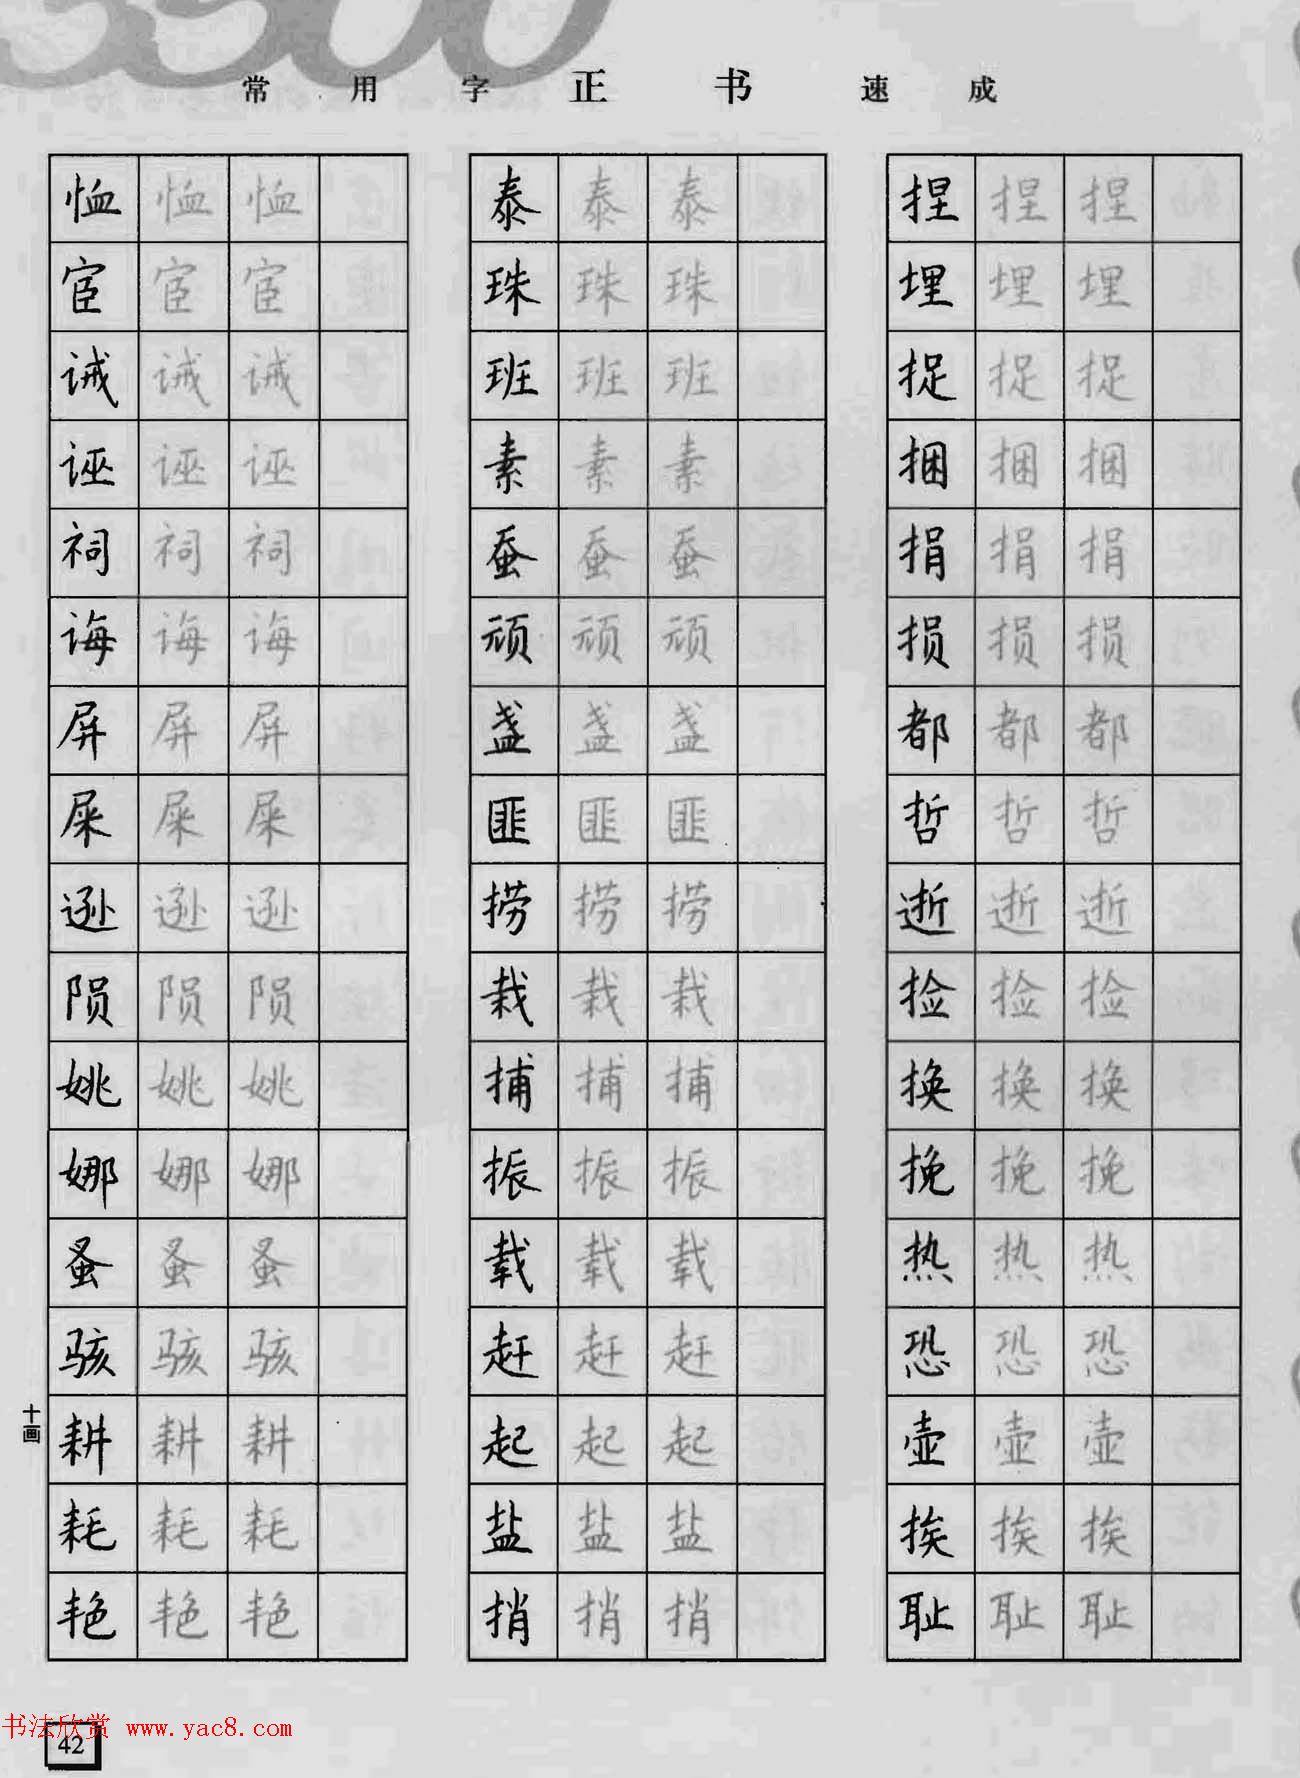 常用字正书速成
恤恤恤
宦宦宦
诫诫诫
诬诬诬
祠祠祠
诲诲诲
屏屏屏
屎屎屎
逊逊逊
陨陨陨
姚姚姚
娜娜娜
蚤蚤蚤
骇骇骇
十画
耕耕耕
耗耗耗
艳艳艳
泰泰泰
珠珠珠
班班班
素素素
蚕蚕蚕
顽顽顽
盏盏盏
匪匪匪
捞捞捞
栽栽栽
捕捕捕
振振振
载载载
赶赶赶
起起起
盐盐盐
捎捎捎
捏捏捏
埋埋埋
捉捉捉
捆捆捆
捐捐捐
损损损
都都都
哲哲哲
逝逝逝
捡捡捡
换换换
挽挽挽
热热热
恐恐恐
壶壶壶
挨挨挨
耻耻耻
书法欣赏 www.yac8.com
42